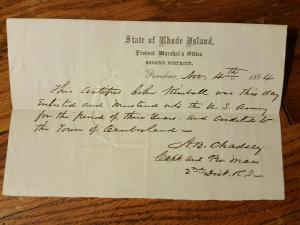 State of Rhode Island,
Provost Marshal's Office,
SECOND DISTRICT.
Providence, Nov. 4th 1864
This certifies John Kimball was this day
Enlisted and Mustered into the U.S. Army
for the period of Three Years. and Credited to
the Town of Cumberland—
A.B. Chadsey
Capt and Pro Mar
2nd Dist. R.I—